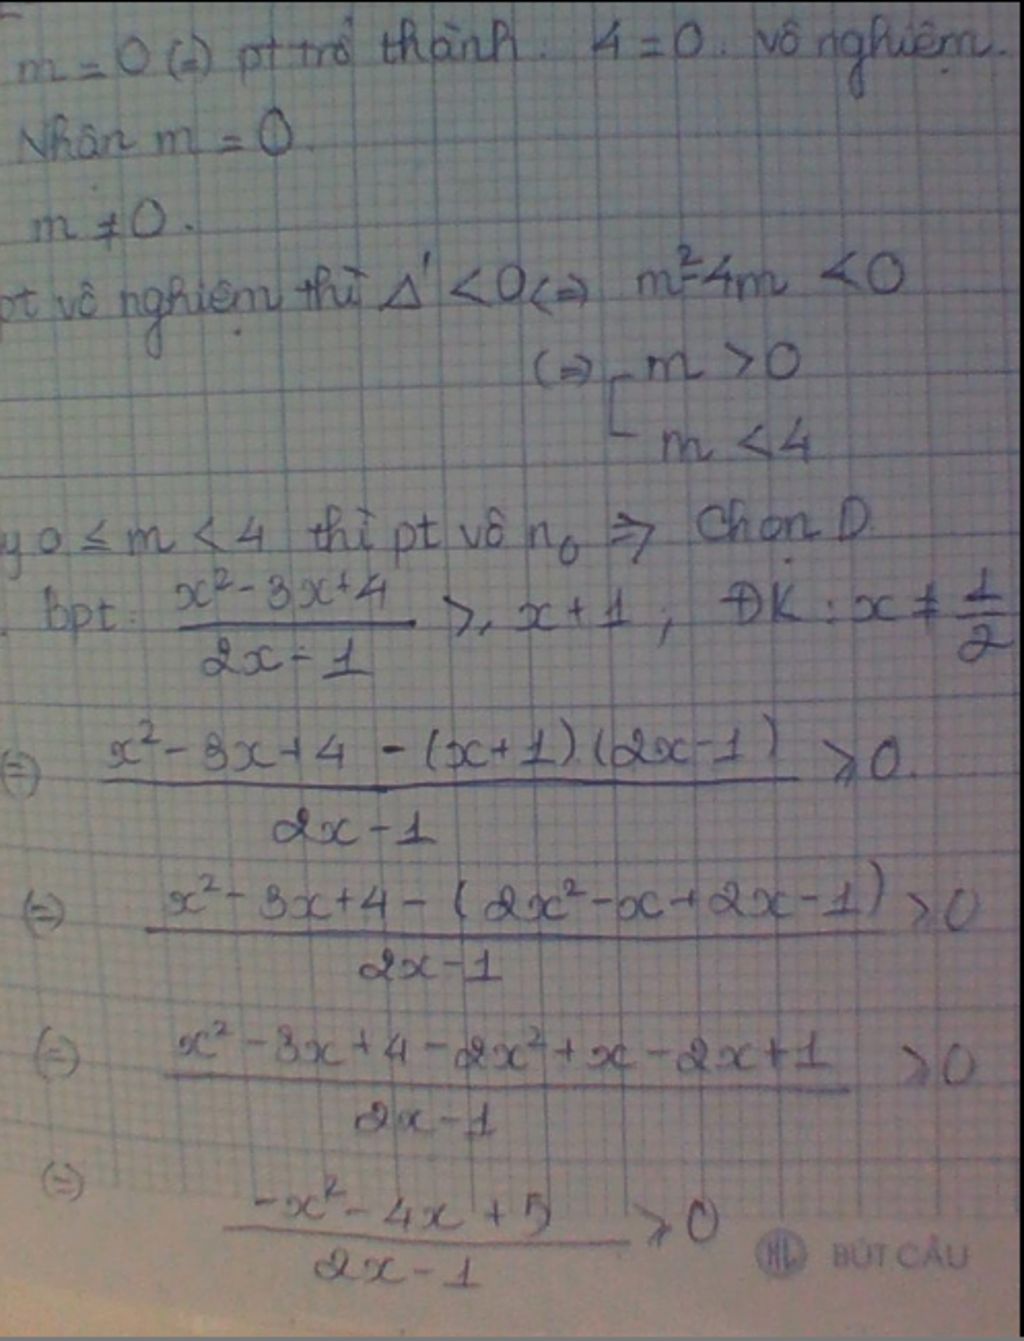 m = 0 (=) pt trở thành. 4 = 0. vô nghiệm.
Nhận m = 0.
m ≠ 0.
pt vô nghiệm thì Δ' < 0 (=) m² - 4m < 0
(=) [ m > 0
m < 4
y 0 ≤ m < 4 thì pt vô n₀ => Chọn D.
. Bpt: \frac{x² - 3x + 4}{2x - 1} ≥ x + 1 ; ĐK : x ≠ \frac{1}{2}
(=) \frac{x² - 3x + 4 - (x + 1).(2x - 1)}{2x - 1} ≥ 0.
(=) \frac{x² - 3x + 4 - (2x² - x + 2x - 1)}{2x - 1} ≥ 0
(=) \frac{x² - 3x + 4 - 2x² + x - 2x + 1}{2x - 1} ≥ 0
(=) \frac{-x² - 4x + 5}{2x - 1} ≥ 0
HL BÚT CẦU